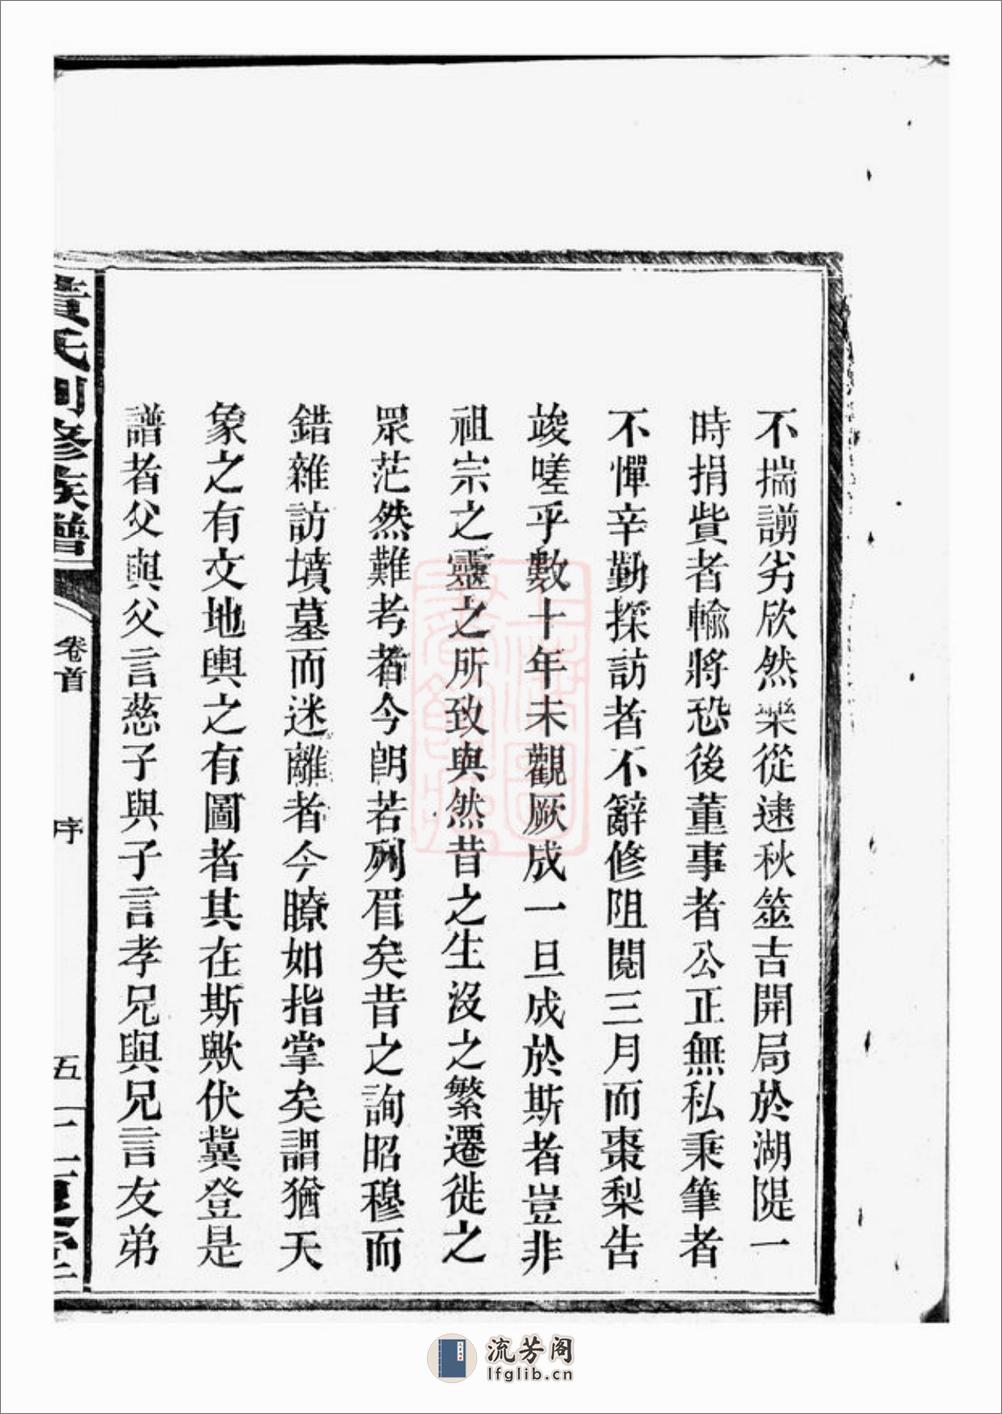 不揣謭劣欣然樂從逮秋筮吉開局於湖隄一
時捐貲者輸將恐後董事者公正無私秉筆者
不憚辛勤探訪者不辭修阻閱三月而棗梨告
竣嗟乎數十年未觀厥成一旦成於斯者豈非
祖宗之靈之所致與然昔之生沒之繁遷徙之
眾茫然難考者今朗若列眉矣昔之詢昭穆而
錯雜訪墳墓而迷離者今瞭如指掌矣謂猶天
象之有文地輿之有圖者其在斯歟伏冀登是
譜者父與父言慈子與子言孝兄與兄言友弟
氏 修族譜
卷首
序
五
上海圖書館藏
流芳阁
lfglib.cn